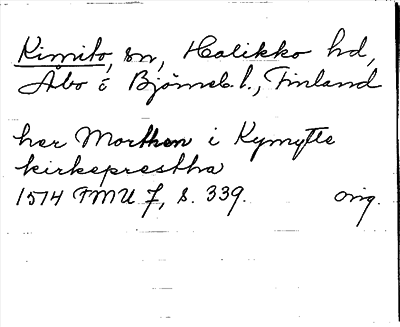 Kimito, sn, Halikko hd,
Åbo o Björneb. l., Finland
her Morthen i Kymytte
kirkeprestha
1514 FMU 7, s. 339. orig.